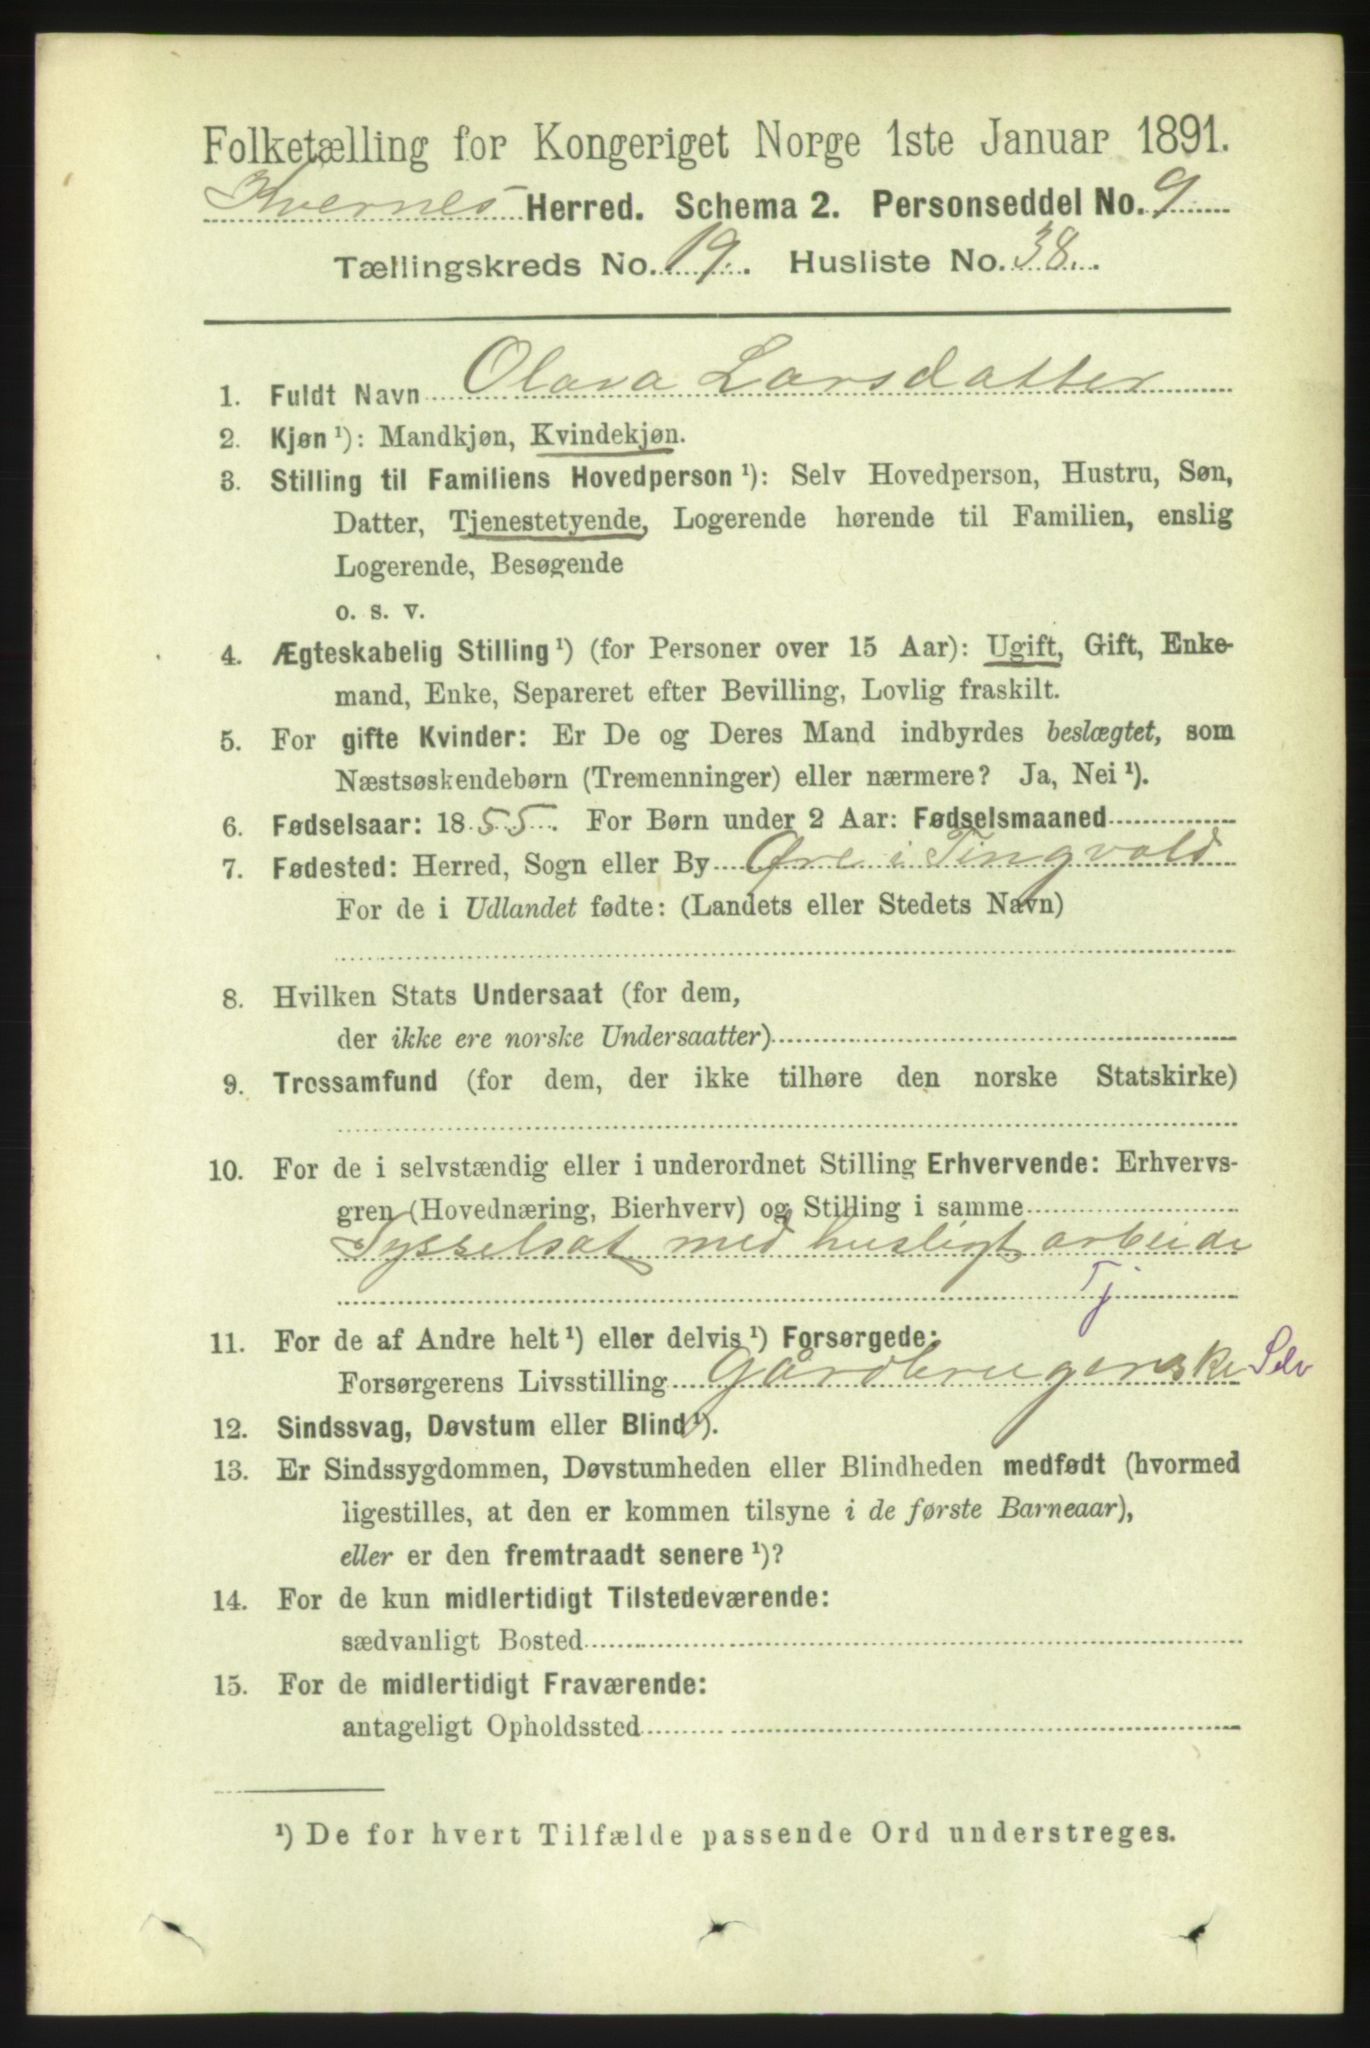 Folketælling for Kongeriget Norge 1ste Januar 1891.
Kvernes Herred. Schema 2. Personseddel No. 9
Tællingskreds No. 19. Husliste No. 38.
1. Fuldt Navn Olava Larsdatter
2. Kjøn ¹): Mandkjøn, Kvindekjøn.
3. Stilling til Familiens Hovedperson ¹): Selv Hovedperson, Hustru, Søn,
Datter, Tjenestetyende, Logerende hørende til Familien, enslig
Logerende, Besøgende
o. s. v.
4. Ægteskabelig Stilling ¹) (for Personer over 15 Aar): Ugift, Gift, Enke-
mand, Enke, Separeret efter Bevilling, Lovlig fraskilt.
5. For gifte Kvinder: Er De og Deres Mand indbyrdes beslægtet, som
Næstsøskendebørn (Tremenninger) eller nærmere? Ja, Nei ¹).
6. Fødselsaar: 1855. For Børn under 2 Aar: Fødselsmaaned
7. Fødested: Herred, Sogn eller By Øre i Tingvold
For de i Udlandet fødte: (Landets eller Stedets Navn)
8. Hvilken Stats Undersaat (for dem,
der ikke ere norske Undersaatter)
9. Trossamfund (for dem, der ikke tilhøre den norske Statskirke)
10. For de i selvstændig eller i underordnet Stilling Erhvervende: Erhvervs-
gren (Hovednæring, Bierhverv) og Stilling i samme
Sysselsat med husligt arbeide
Tj
11. For de af Andre helt ¹) eller delvis ¹) Forsørgede:
Forsørgerens Livsstilling Gårdbrugerske Selv
12. Sindssvag, Døvstum eller Blind ¹).
13. Er Sindssygdommen, Døvstumheden eller Blindheden medfødt (hvormed
ligestilles, at den er kommen tilsyne i de første Barneaar),
eller er den fremtraadt senere ¹)?
14. For de kun midlertidigt Tilstedeværende:
sædvanligt Bosted
15. For de midlertidigt Fraværende:
antageligt Opholdssted
¹) De for hvert Tilfælde passende Ord understreges.